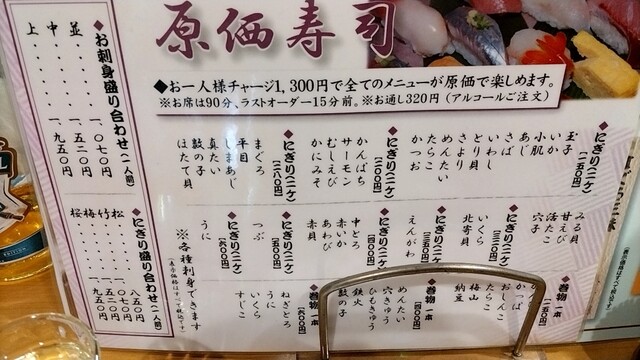 原価寿司
◆お一人様チャージ1,300円で全てのメニューが原価で楽しめます。
※お席は90分、ラストオーダー15分前。※お通し320円（アルコールご注文）
◆にぎり(二ケ)【一五〇円】
玉子
いか
小肌
あじ
さば
いわし
とり貝
さより
めんたい
たらこ
かつお
◆にぎり(二ケ)【二〇〇円】
かんぱち
サーモン
むしえび
かにみそ
◆にぎり(二ケ)【二八〇円】
まぐろ
平目
しまあじ
真たい
数の子
ほたて貝
みる貝
甘えび
活たこ
穴子
◆にぎり(二ケ)
いくら
北寄貝
◆にぎり(二ケ)
えんがわ
◆にぎり(二ケ)【四〇〇円】
中とろ
赤いか
あわび
赤貝
◆にぎり(二ケ)【五〇〇円】
つぶ
◆にぎり(二ケ)
うに
※各種刺身できます
◆巻物 一本【一五〇円】
かっぱ
おしんこ
たらこ
梅山
納豆
◆巻物 一本
めんたい
穴きゅう
ひもきゅう
鉄火
数の子
◆巻物 一本
ねぎとろ
うに
いくら
すじこ
◆お刺身盛り合わせ(一人前)
並 一、〇七〇円
中 一、五二〇円
上 一、九五〇円
◆にぎり盛り合わせ(一人前)
松 八五〇円
竹 一、〇七〇円
梅 一、五二〇円
桜 一、九五〇円